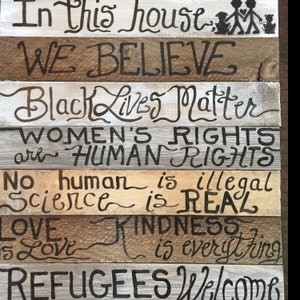 In this house
WE BELIEVE
Black Lives Matter
WOMEN'S RIGHTS
are HUMAN RIGHTS
No human is illegal
Science is REAL
LOVE KINDNESS
is Love is everything
REFUGEES Welcome